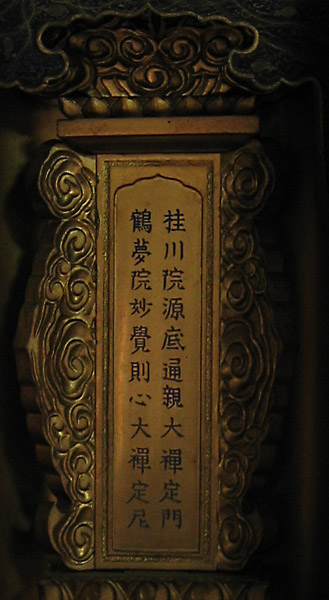 桂川院源底通親大禪定門
鶴夢院妙覺則心大禪定尼